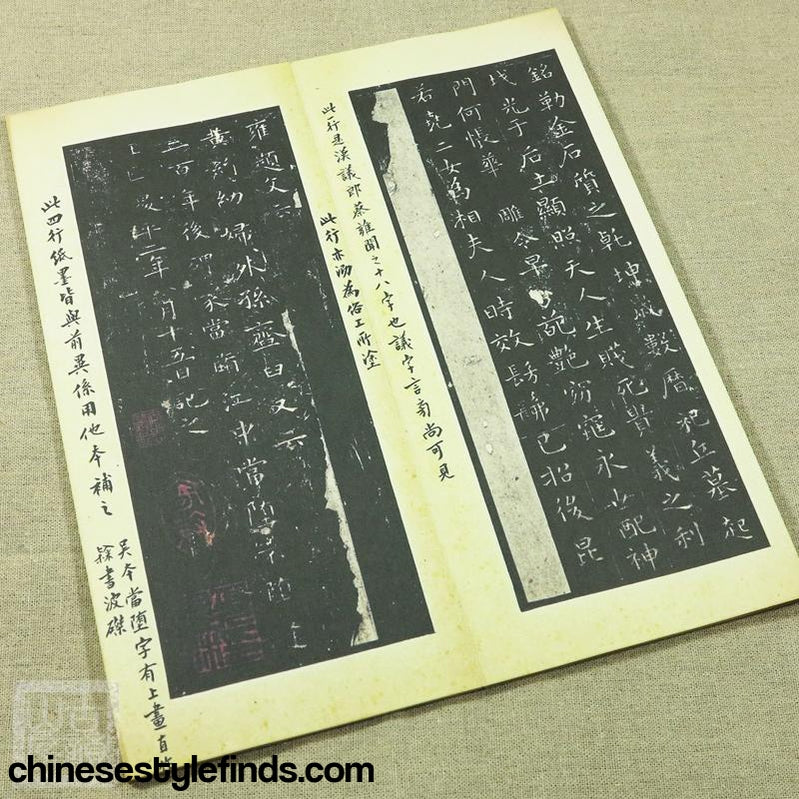 銘勒金石質之乾坤歲數曆祀丘墓起
墳光于后土顯照天人生賤死貴義之利
門何悵華 雕令早 葩艷窈窕永世配神
若堯二女為相夫人時效髣髴已招後昆
此行是漢議郎蔡雝聞之十八字也議字言旁尚可見
此行亦 為俗工所塗
雍題文云
黃絹幼婦外孫齏臼又云
三百年後碑冢當墮江中當墮不
二年八月十五日記之
此四行紙墨皆與前異係用他本補之
吳本當墮字有上畫直
隸書波磔
chinesestylefinds.com